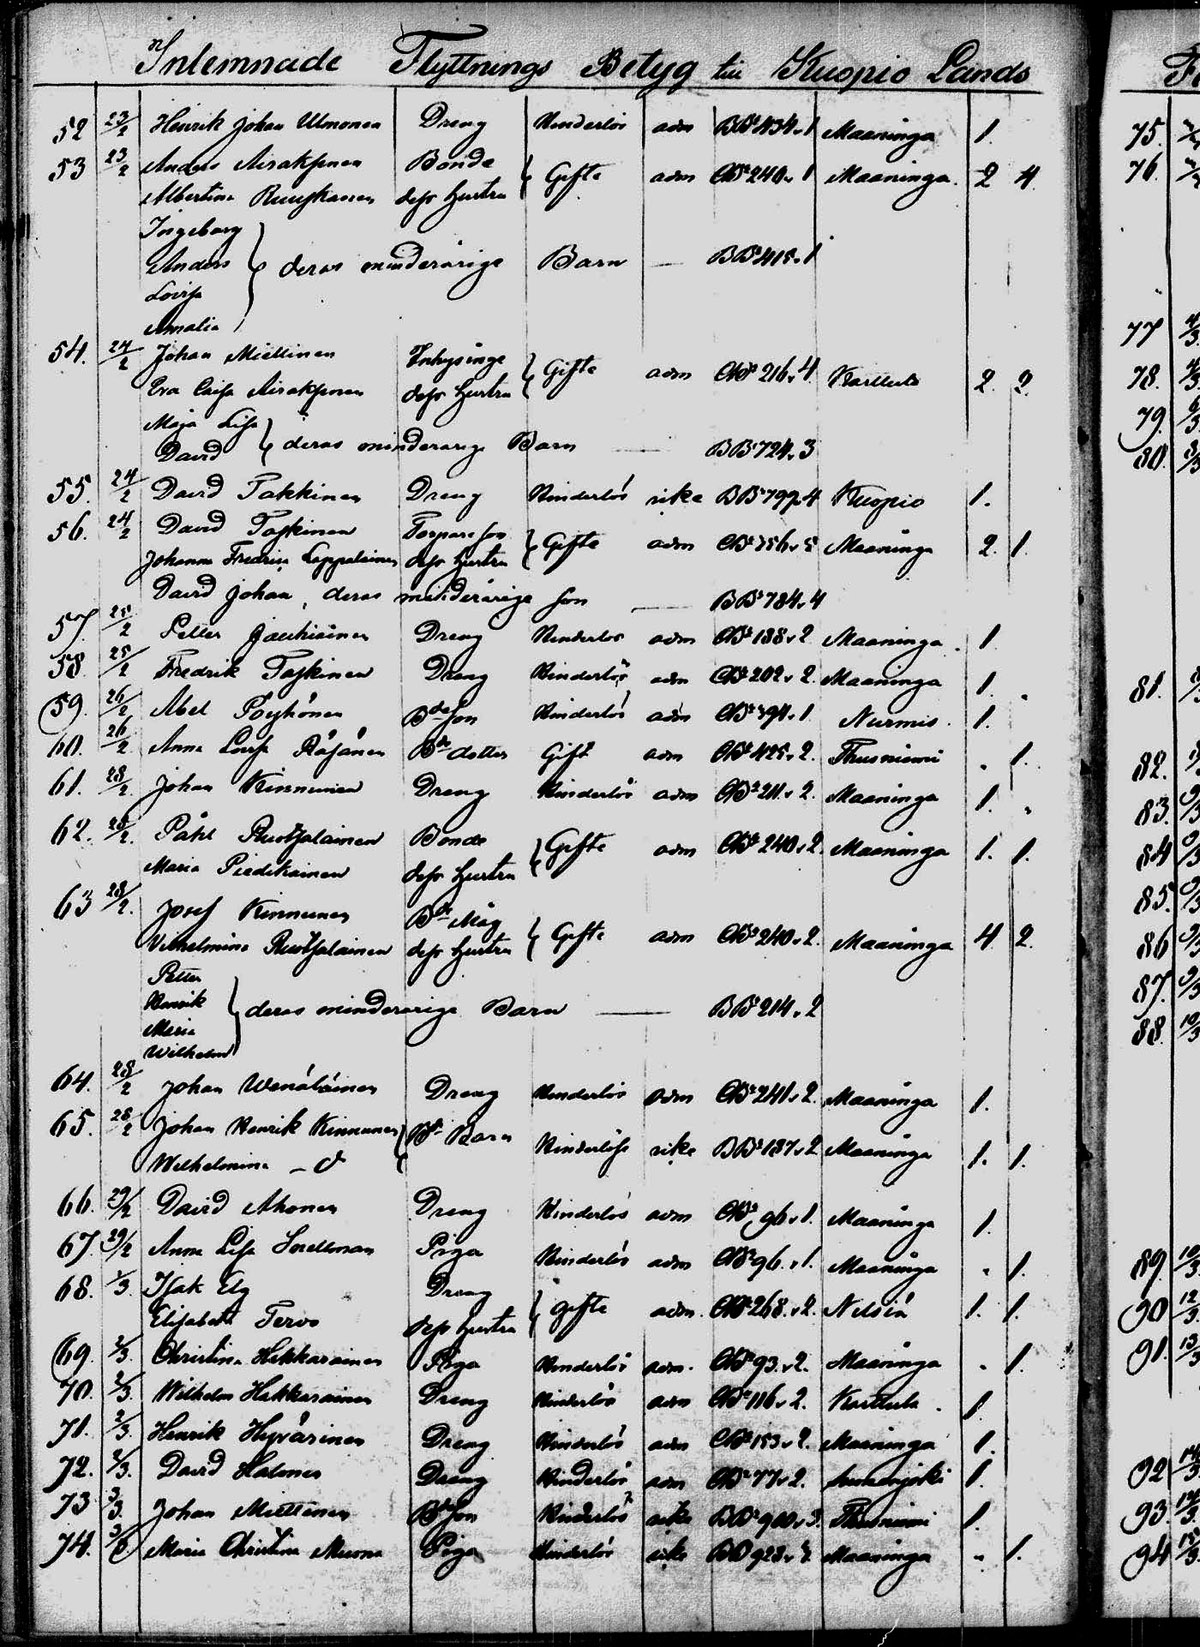 Inlemnade Flyttnings Betyg till Kuopio Lands
52 23/2 Henrik Johan Ulmonen Dreng Hinderlös adm BB 434.1 Maaninga 1.
53 23/2 Anders Airaksinen Bonde
Albertina Ruuskanen dess hustru Gifte adm CB 240.1 Maaninga. 2 4
Ingeborg
Anders deras minderårige Barn — BB 415.1
Lovisa
Amalia
54. 24/2 Johan Miettinen Inhysinge
Eva Caisa Airaksinen dess hustru Gifte adm 216.4 Karttula 2. 2.
Maja Lisa
David deras minderårige Barn — BB 724.3
55. 24/2 David Takkinen Dreng Hinderlös icke BB 797.4 Kuopio 1.
56. 24/2 David Toskinen
Johanna Fredrica Lappalainen dess hustru Gifte adm Maaninga 2. 1.
David Johan, deras minderårige son — BB 784.4
57. 25/2 Petter Dreng Hinderlös adm 188.2 Maaninga. 1.
58. 25/2 Fredrik Toskinen Dreng Hinderlös adm 202.2. Maaninga 1.
59. 26/2 Abel Pöyhönen Bde son Hinderlös adm Nurmis. 1.
60. 26/2 Anna Lovisa Bde dotter Gift adm 425.2. Thusniemi . 1.
61. 28/2 Johan Kinnunen Dreng Hinderlös adm 211.2. Maaninga 1. .
62. 28/2. Påhl Ruotsalainen Bonde
Maria Piedikäinen dess hustru Gifte adm 240.2. Maaninga 1. 1.
63 28/2. Josef Kinnunen Bde Måg
Vilhelmina Ruotsalainen dess hustru Gifte adm 240.2. Maaninga 4 2.
Petter
Henrik deras minderårige Barn — BB 214.2
Maria
Wilhelm
64. 28/2 Johan Wänäläinen Dreng Hinderlös adm 241.2. Maaninga 1.
65. 28/2 Johan Henrik Kinnunen Bde Barn
Wilhelmina Hinderlöse icke BB 187.2 Maaninga 1. 1.
66. 29/2 David Ahonen Dreng Hinderlös adm 96.1. Maaninga 1.
67. 29/2 Anna Lisa Snellman Piga Hinderlös adm 96.1. Maaninga . 1.
68. 1/3. Isak Elg Dreng
Elisabeth Tervo dess hustru gifte adm. 268.2. Nilsiä 1. 1.
69. 2/3. Christina Hakkarainen Piga Hinderlös adm. 93.2. Maaninga . 1.
70. 2/3. Wilhelm Hakkarainen Dreng Hinderlös adm 116.2. Karttula. 1.
71. 2/3. Henrik Hyvärinen Dreng Hinderlös adm 153.2. Maaninga 1.
72. 2/3. David Halonen Dreng Hinderlös adm 77.2. 1.
73 3/3. Johan Miettinen Bde son Hinderlös icke BB 900.3. Thusniemi 1.
74. 3/3 Maria Christina Piga Hinderlös icke Maaninga . 1.
75.
76.
77
78.
79.
80.
81.
82.
83.
84
85.
86
87.
88.
89.
90
91.
92
93.
94